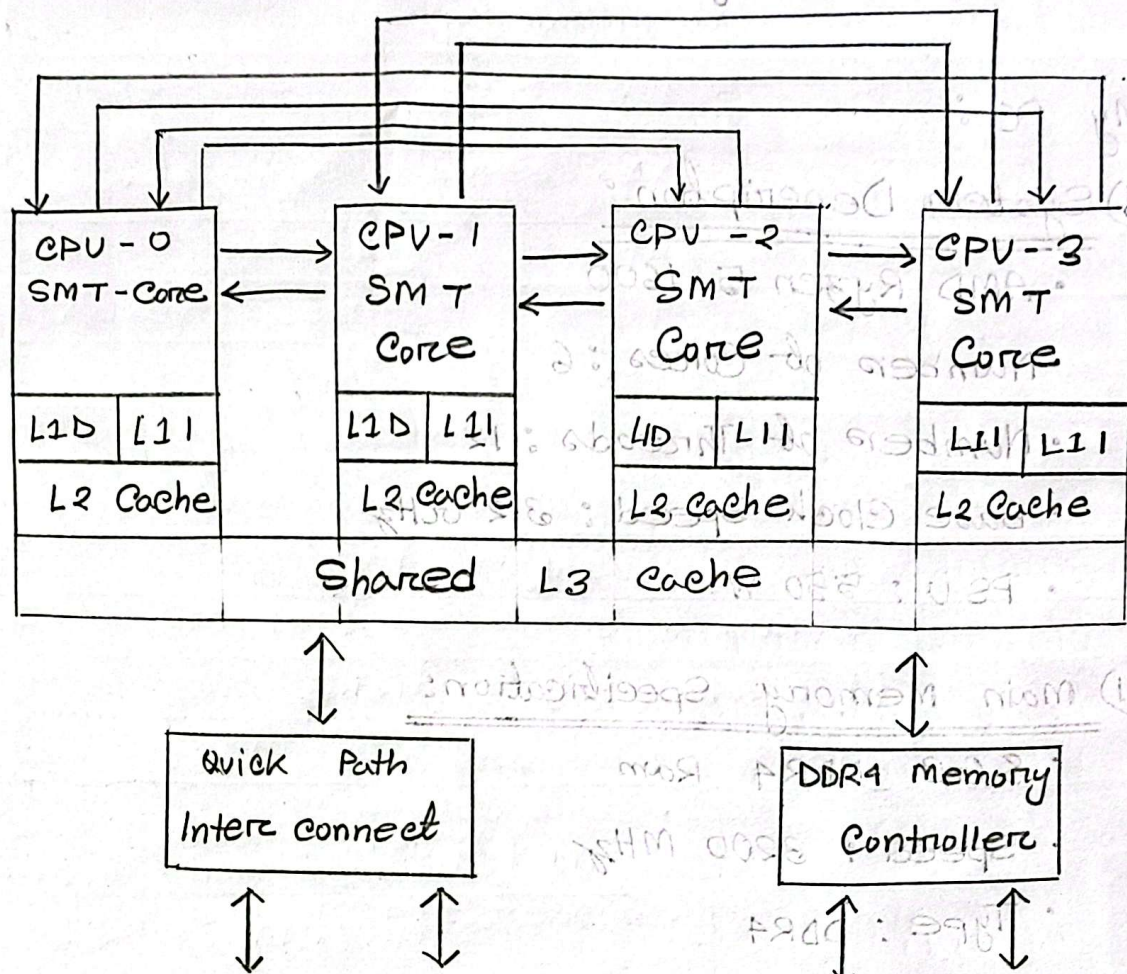 CPU-0
SMT-Core
L1D L1I
L2 Cache
CPU-1
SMT
Core
L1D L1I
L2 Cache
CPU-2
SMT
Core
L1D L1I
L2 Cache
CPU-3
SMT
Core
L1I L1I
L2 Cache
Shared L3 Cache
Quick Path
Inter connect
DDR4 Memory
Controller